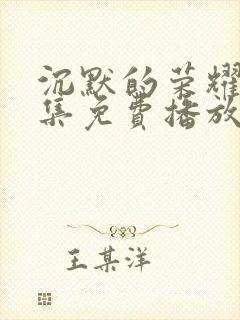 沉默的荣耀
集免费播放
王某洋